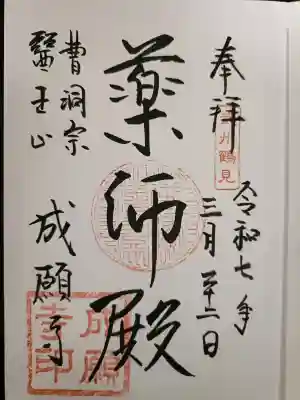 奉拝
州鶴見
令和七年
三月二十二日
薬師殿
曹洞宗
醫王山
成願寺
成願寺印